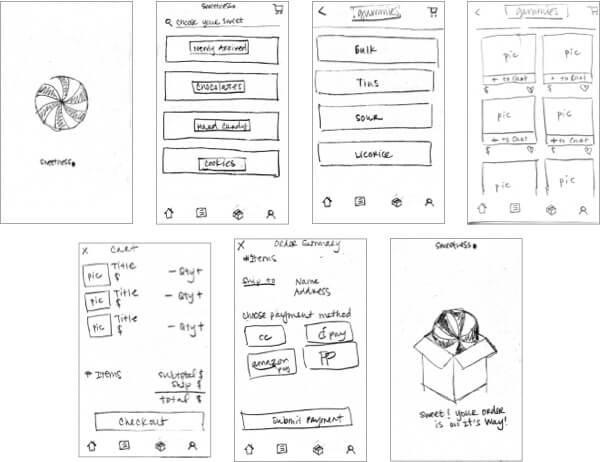 Sweetness.
Sweetness.
Choose your sweet
Newly Arrived
Chocolates
Hard Candy
Cookies
gummies
Bulk
Tins
Sour
Licorice
gummies
pic
pic
+ to Cart
$
$
pic
pic
+ to Cart
$
$
pic
pic
X Cart
pic Title - Qty +
$
pic Title - Qty +
$
pic Title - Qty +
$
# Items Subtotal $
Ship $
total $
Checkout
X Order Summary
#Items
Ship to Name
Address
Choose payment method
CC
pay
amazon pay
PP
Submit Payment
Sweetness.
Sweet! Your order
is on it's way!